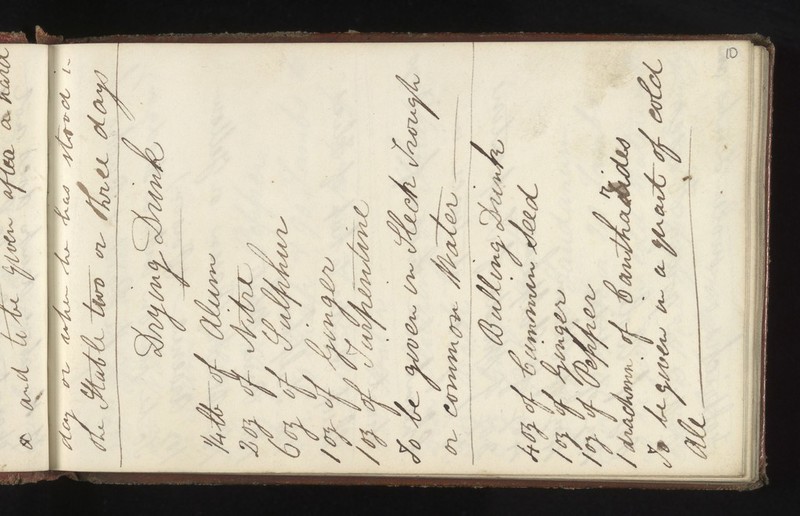 & and to be given after a hard
day or when he has stood in
the Stable two or three days
10
Drying Drink
1/4 lb of Alum
2oz of Nitre
6oz of Sulphur
1oz of Ginger
1oz of Turpentine
To be given in Slech Trough
or common Water
Bulling Drink
4oz of Cummin Seed
1oz of Ginger
1oz of Pepper
1 drachom of Cantharides
To be given in a quart of cold
Ale